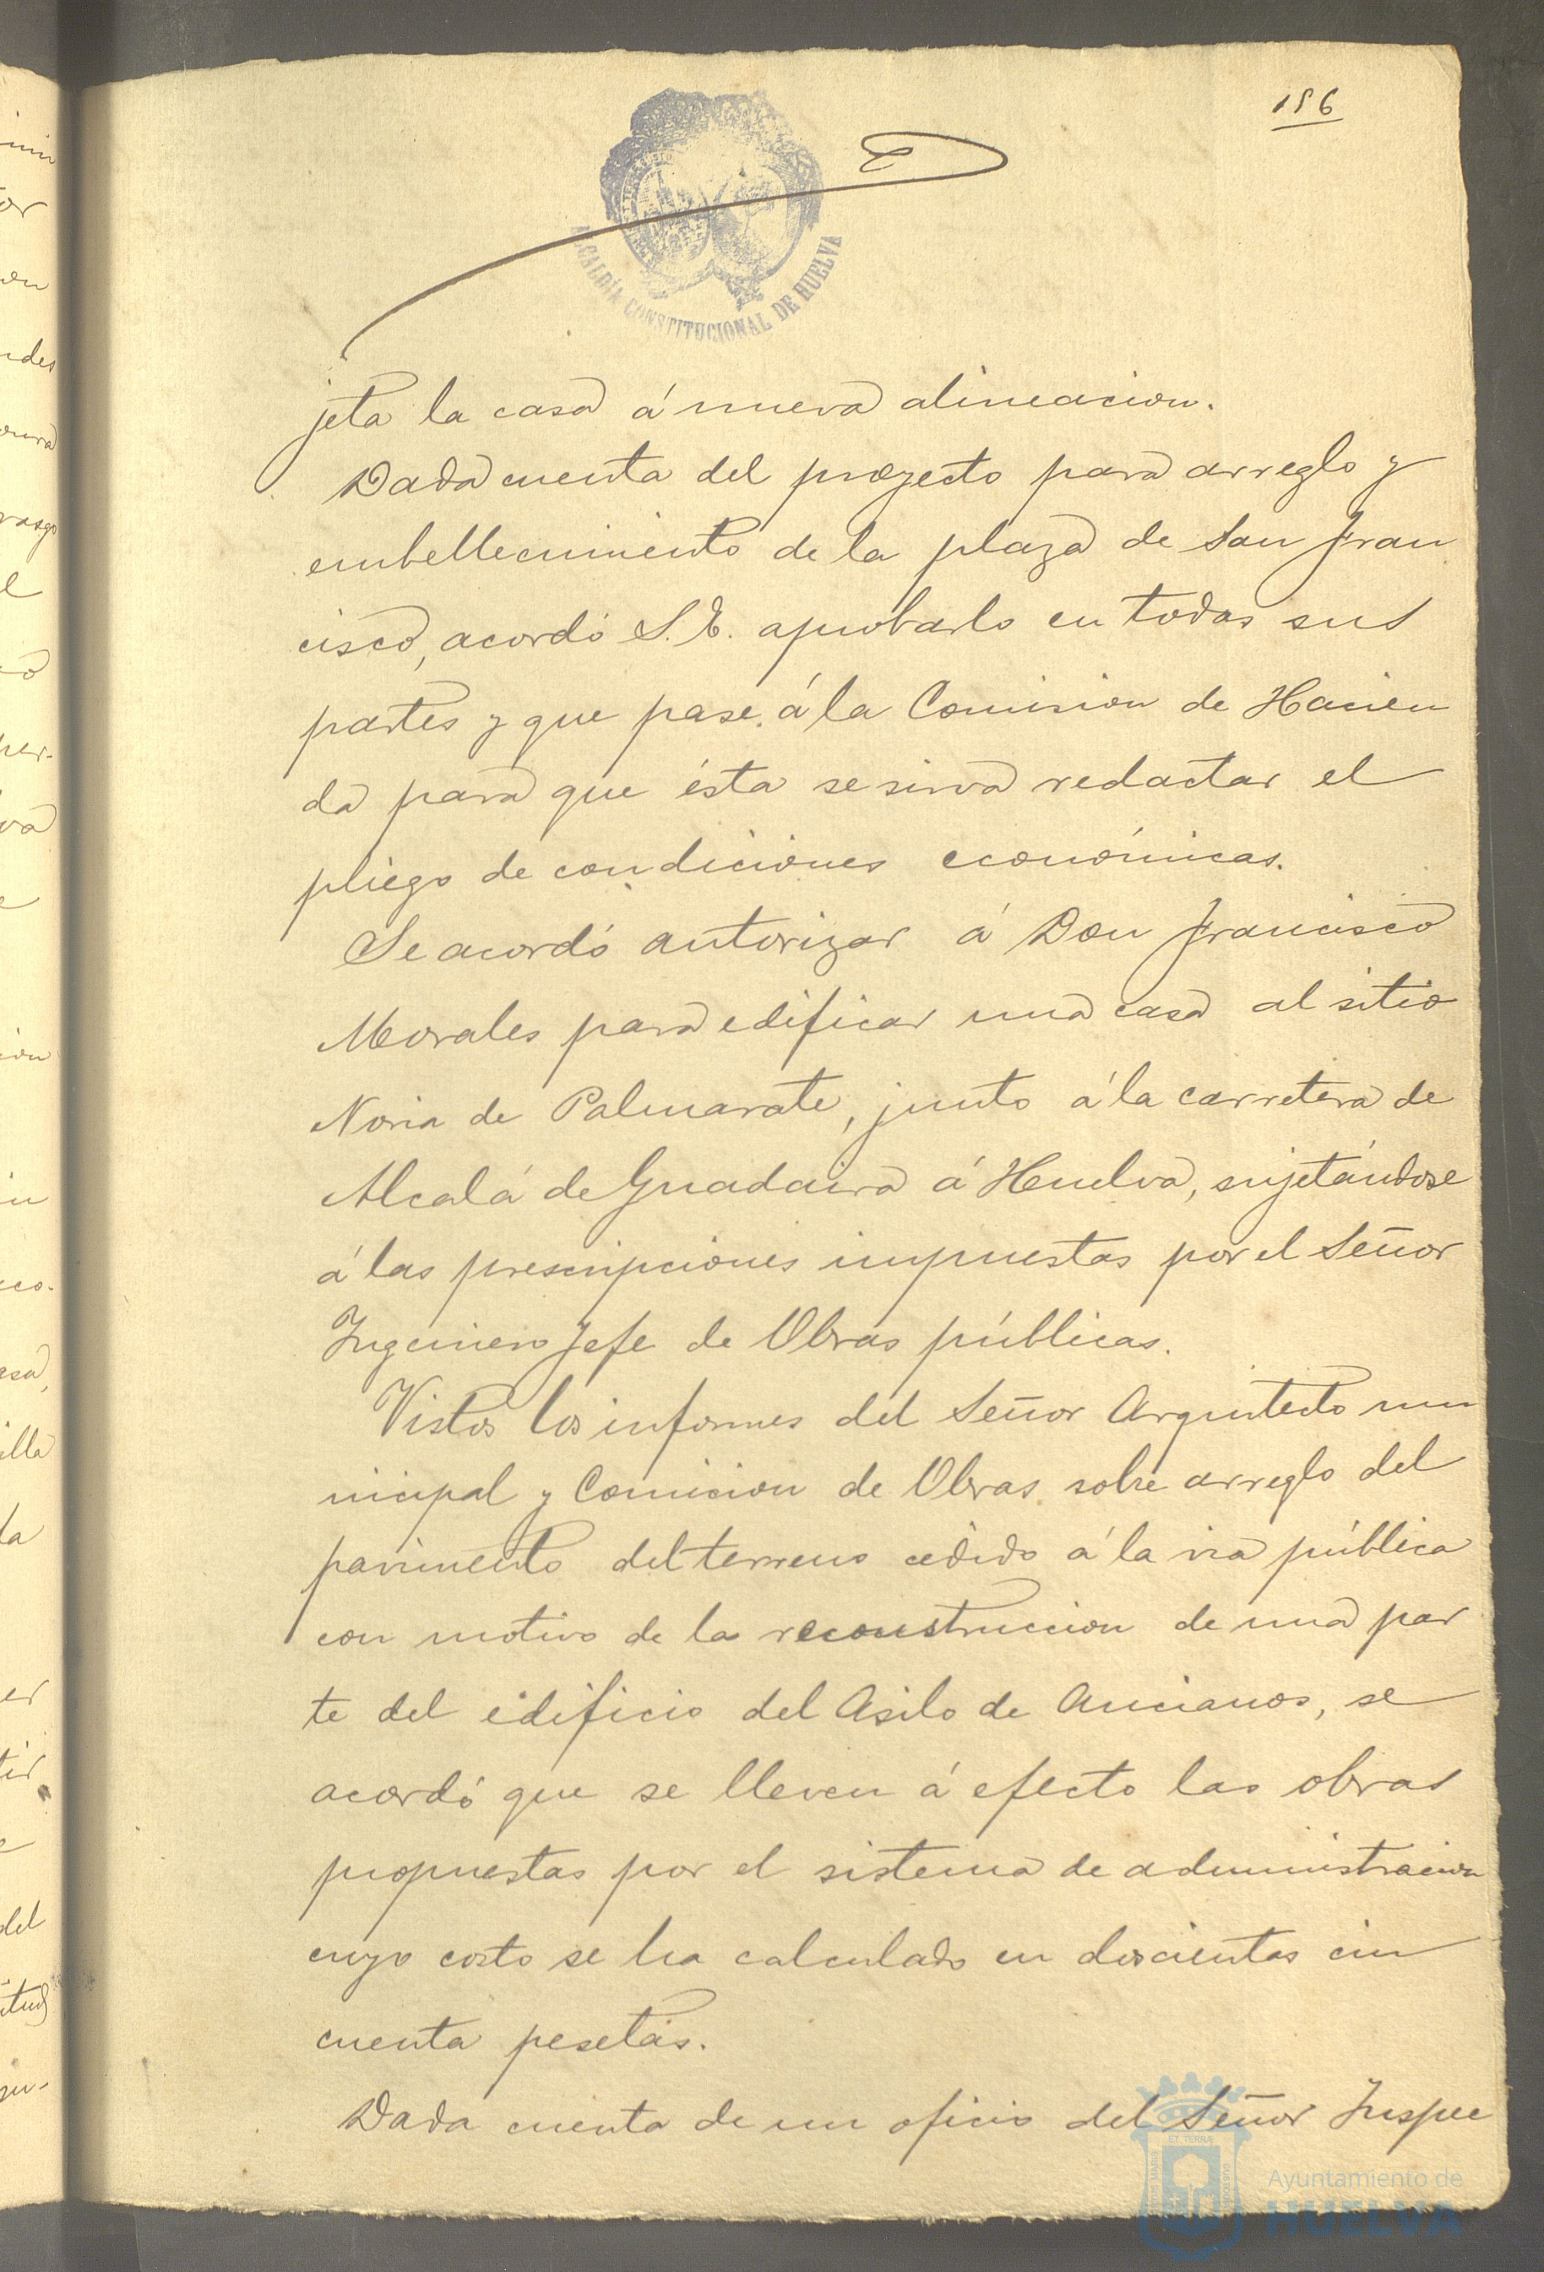 156
ALCALDÍA CONSTITUCIONAL DE HUELVA
jeta la casa á nueva alineacion.
Dada cuenta del proyecto para arreglo y
embellecimiento de la plaza de San Fran
cisco, acordó S. E. aprobarlo en todas sus
partes y que pase á la Comision de Hacien
da para que ésta se sirva redactar el
pliego de condiciones económicas.
Se acordó autorizar á Don Francisco
Morales para edificar una casa al sitio
Noria de Palmarate, junto á la carretera de
Alcalá de Guadaira á Huelva, sujetándose
á las prescripciones impuestas por el Señor
Ingeniero Jefe de Obras públicas.
Vistos los informes del Señor Arquitecto mu
nicipal y Comision de Obras sobre arreglo del
pavimento del terreno cedido á la via pública
con motivo de la reconstruccion de una par
te del edificio del Asilo de Ancianos, se
acordó que se lleven á efecto las obras
propuestas por el sistema de administracion
cuyo costo se ha calculado en doscientas cin
cuenta pesetas.
Dada cuenta de un oficio del Señor Inspec
Ayuntamiento de
HUELVA